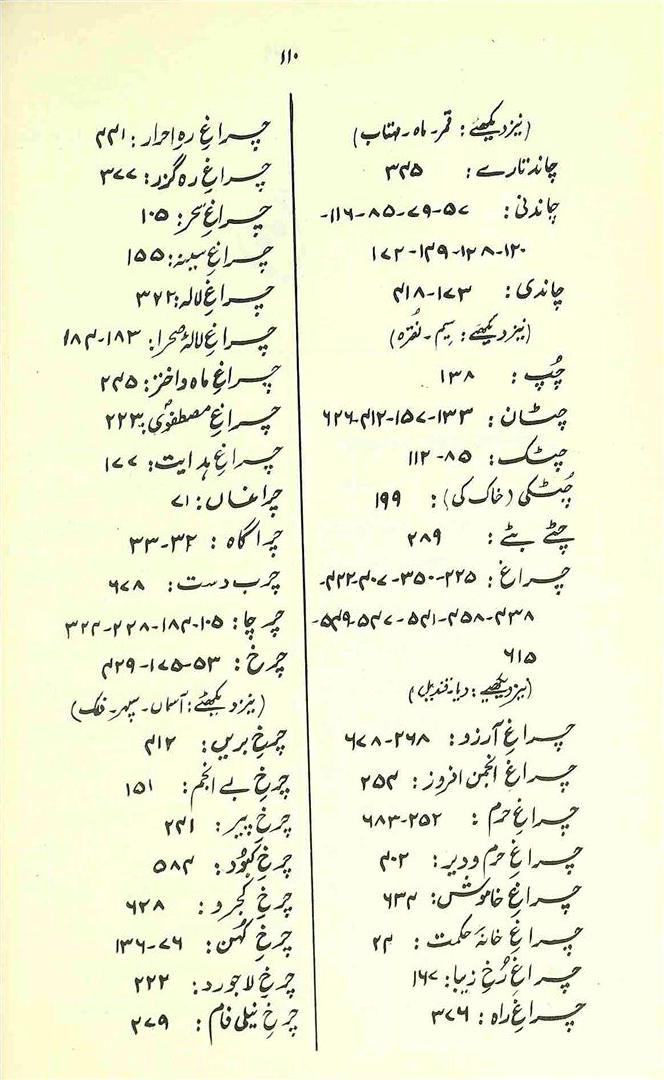 ۱۱۰
(نیز دیکھئے: قمر۔ ماہ۔ مہتاب)
چاند تارے: ۳۴۵
چاندنی: ۵۷-۷۹-۸۵-۱۱۶-
۱۲۰-۱۲۸-۱۴۹-۱۷۲
چاندی: ۱۷۳-۴۱۸
(نیز دیکھئے: سیم۔ نُقرہ)
چُپ: ۱۳۸
چٹان: ۱۳۳-۱۵۷-۴۱۲-۶۲۶
چٹک: ۸۵-۱۱۲
چٹکی (خاک کی): ۱۹۹
چٹے بٹے: ۲۸۹
چراغ: ۲۲۵-۳۵۰-۴۰۷-۴۲۲-
۴۳۸-۴۵۸-۵۴۱-۵۴۷-۵۴۹-
۶۱۵
(نیز دیکھیے: دیا۔ قندیل)
چراغِ آرزو: ۲۶۸-۶۷۸
چراغِ انجمن افروز: ۲۵۴
چراغِ حرم: ۲۵۲-۶۸۳
چراغِ حرم و دیر: ۴۰۲
چراغِ خاموش: ۶۳۴
چراغِ خانۂ حکمت: ۲۴
چراغِ رُخِ زیبا: ۱۶۷
چراغِ راہ: ۳۷۶
چراغِ رہِ احرار: ۴۴۱
چراغِ رہ گزر: ۳۷۷
چراغِ سحر: ۱۰۵
چراغِ سینہ: ۱۵۵
چراغِ لالہ: ۳۷۲
چراغِ لالۂ صحرا: ۱۸۳-۱۸۴
چراغِ ماہ و اختر: ۲۴۵
چراغِ مصطفویؐ: ۲۲۳
چراغِ ہدایت: ۱۷۷
چراغاں: ۷۱
چراگاہ: ۳۲-۳۳
چرب دست: ۶۷۸
چرچا: ۱۰۵-۱۸۴-۲۲۸-۳۲۴
چرخ: ۵۳-۱۷۵-۴۲۹
(نیز دیکھئے: آسماں۔ سپہر۔ فلک)
چرخِ بریں: ۴۱۲
چرخِ بے انجم: ۱۵۱
چرخِ پیر: ۲۴۱
چرخِ کبُود: ۵۸۴
چرخِ کجرو: ۶۲۸
چرخِ کہُن: ۷۶-۱۳۶
چرخِ لاجورد: ۲۲۲
چرخِ نیلی فام: ۲۷۹